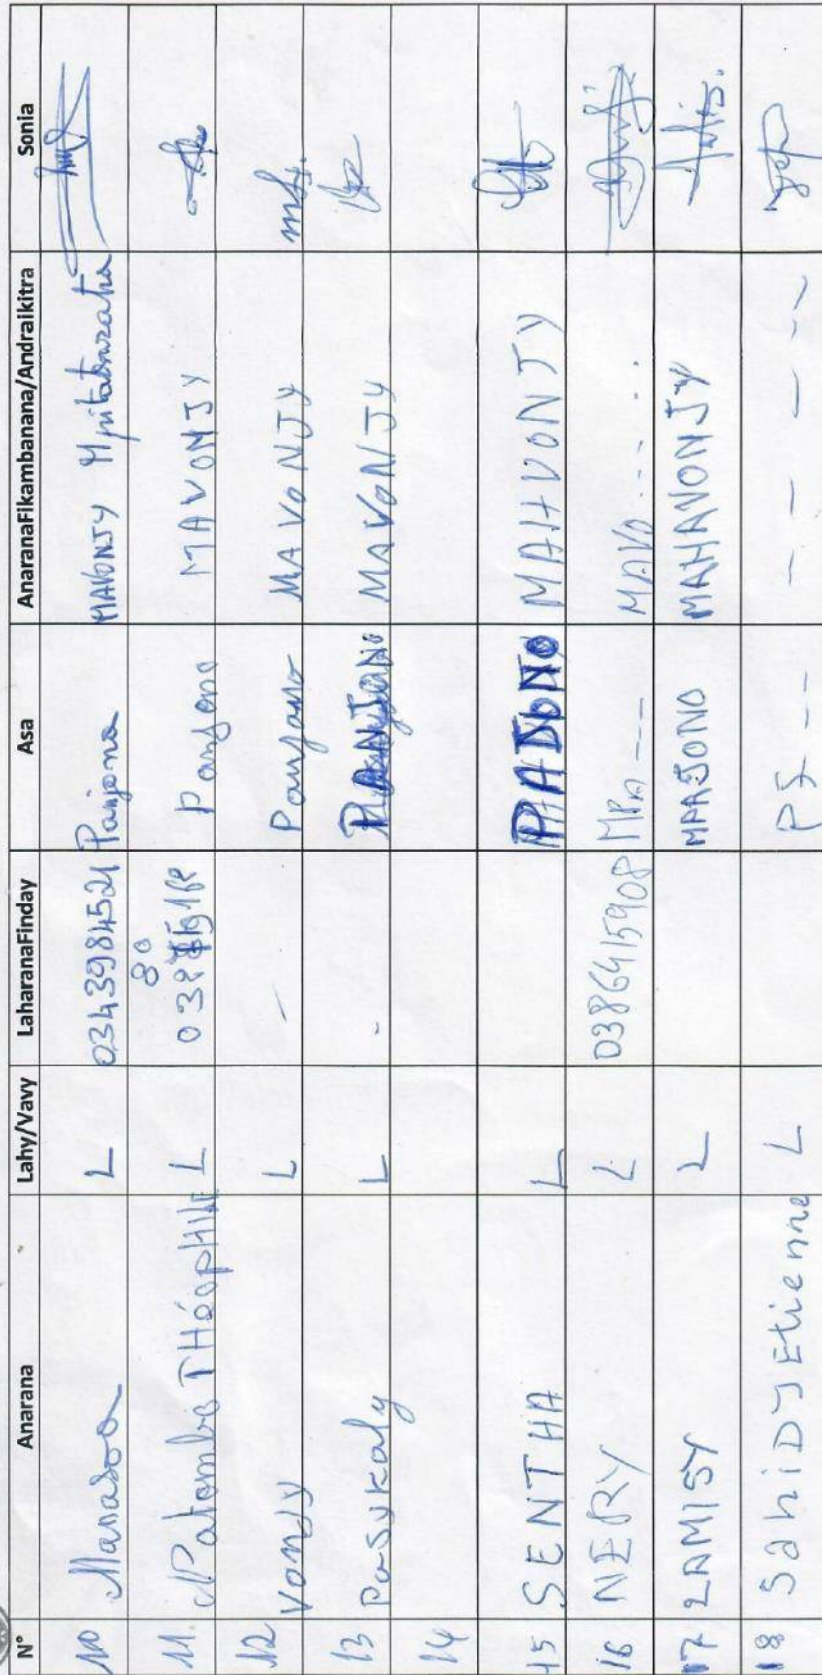 N° Anarana Lahy/Vavy LaharanaFinday Asa AnaranaFikambanana/Andraikitra Sonia
10 Manasoa L 0343984521 Panjono MAVONJY Mpitantsoratra
11 Patombo THéopHILE L Panjono MAVONJY
12 Vondy L - Panjono MAVONJY
13 Pasykaly L - PANJONO MAVONJY
14
15 SENTHA L PADJONO MAHVONJY
16 NERY L 0386415908 MPA --- MAVO ---...
17 ZAMISY L MPANJONO MAHAVONJY
18 SahiDJ Etienne L PJ --- - - - - -